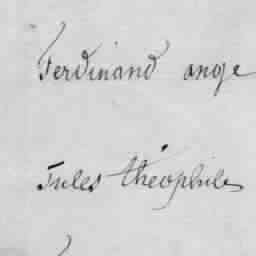 Ferdinand ange
Jules théophile